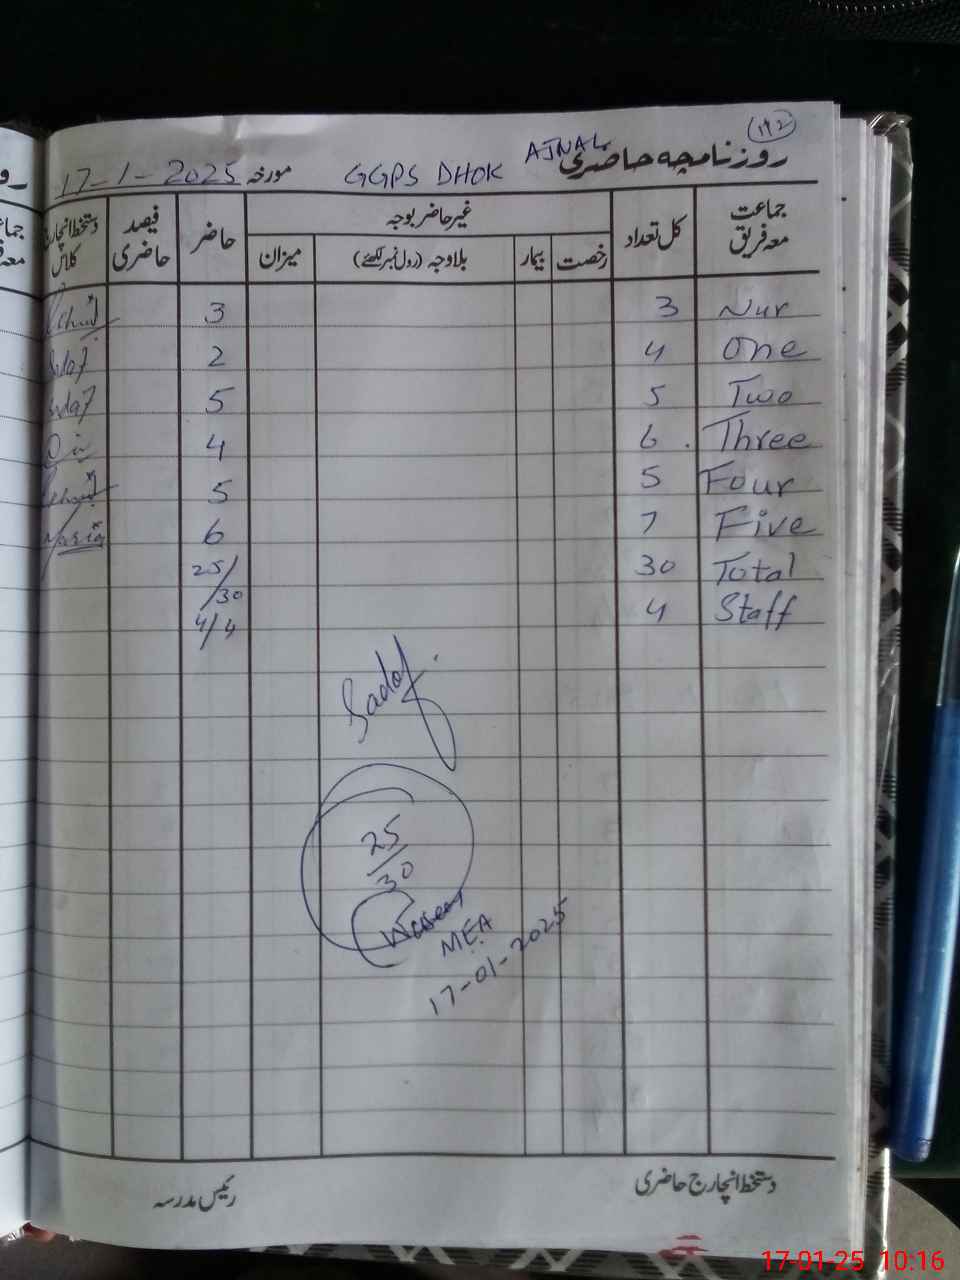 192
روزنامچہ حاضری GGPS DHOK AJNAL مورخہ 17-1-2025
جماعت معہ فریق کل تعداد غیر حاضر بوجہ حاضر فیصد حاضری دستخط انچارج کلاس
رخصت بیمار بلاوجہ (رول نمبر لکھئے) میزان
Nur 3 3
One 4 2 Sadaf
Two 5 5 Sadaf
Three 6 4
Four 5 5
Five 7 6 Maria
Total 30 25/30
Staff 4 4/4
Sadaf
25/30
Waseem
MEA
17-01-2025
دستخط انچارج حاضری رئیس مدرسہ
17-01-25 10:16